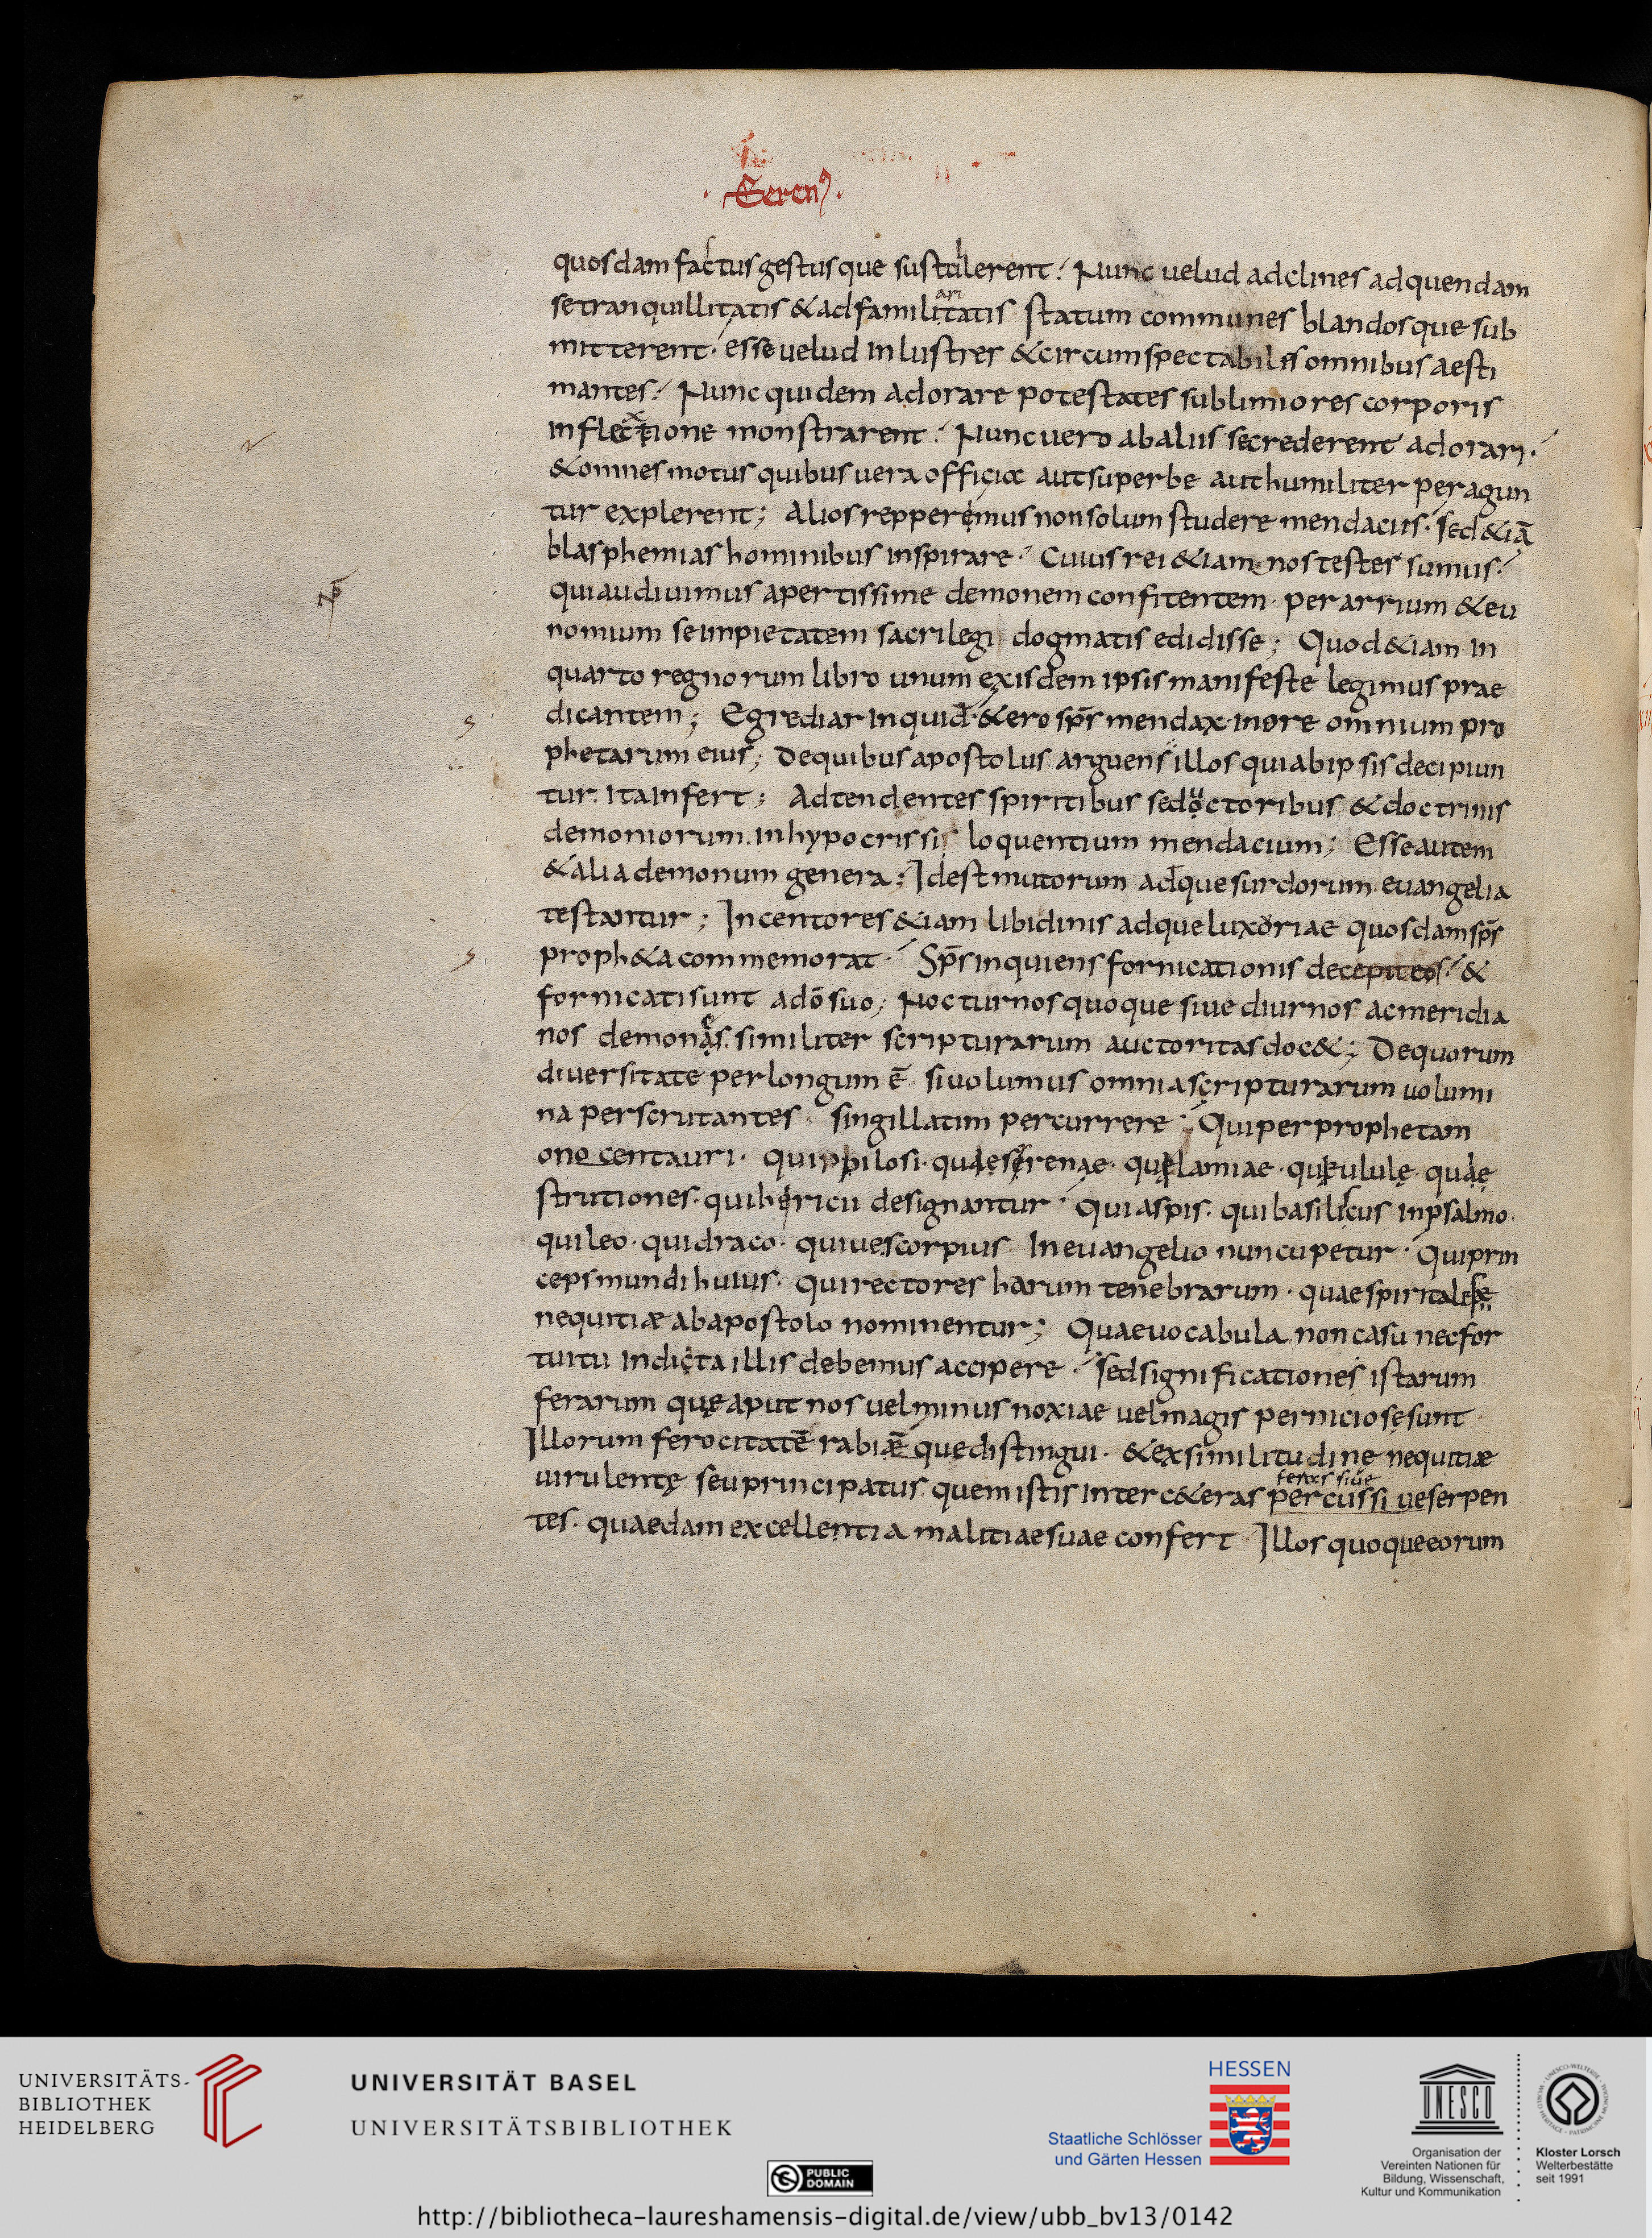 · Seren⁹ ·
quosdam factus gestusque sustulerent. Nunc uelud adclines ad quendam
se tranquillitatis & ad familiaritatis statum communes blandosque sub
mitterent. esse uelud inlustres & circumspectabiles omnibus aesti
mantes. Nunc quidem adorare potestates sublimiores corporis
inflectxione monstrarent. Nunc uero ab aliis se crederent adorari.
& omnes motus quibus uera officia aut superbe aut humiliter peragun
tur explerent; Alios repperemus non solum studere mendaciis. sed &iā
blasphemias hominibus inspirare. Cuius rei &iam nos testes sumus.
qui audiuimus apertissime demonem confitentem. per arrium & eu
nomium se impietatem sacrilegi dogmatis edidisse; Quod &iam in
quarto regnorum libro unum ex isdem ipsis manifeste legimus prae
dicantem; Egrediar inquid & ero sp̄s mendax in ore omnium pro
phetarum eius; De quibus apostolus arguens illos qui ab ipsis decipiun
tur. ita infert; Adtendentes spiritibus seductoribus & doctrinis
demoniorum. in hypocrissi loquentium mendacium; Esse autem
& alia demonum genera; Id est mutorum adque surdorum. euangelia
testantur; Incentores &iam libidinis adque luxoriae quosdam sp̄s
proph&a commemorat. Sp̄s inquiens fornicationis decepit eos. &
fornicati sunt a dō suo; Nocturnos quoque siue diurnos ac meridia
nos demones. similiter scripturarum auctoritas doc&; De quorum
diuersitate perlongum ē si uolumus omnia scripturarum uolumi
na perscrutantes. singillatim percurrere. Qui per prophetam
onocentauri. qui pilosi. quae serenae. quae lamiae. quae ululę. quae
strutiones. qui hericii designantur. Qui aspis. qui basiliscus in psalmo.
qui leo. qui draco. quiue scorpius In euangelio nuncupetur. Qui prin
ceps mundi huius. Qui rectores harum tenebrarum. quae spiritales
nequitiæ ab apostolo nominentur; Quae uocabula non casu nec for
tuitu indicta illis debemus accipere. sed significationes istarum
ferarum quę aput nos uel minus noxiae uel magis perniciosę sunt.
Illorum ferocitatē rabiēque distingui. & ex similitudine nequitiæ
uirulentę seu principatus. quem istis inter c&eras percussi ue serpen
feras siue
tes. quaedam excellentia malitiae suae confert. Illos quoque eorum
UNIVERSITÄTS-
BIBLIOTHEK
HEIDELBERG
UNIVERSITÄT BASEL
UNIVERSITÄTSBIBLIOTHEK
HESSEN
Staatliche Schlösser
und Gärten Hessen
UNESCO
Organisation der
Vereinten Nationen für
Bildung, Wissenschaft,
Kultur und Kommunikation
Kloster Lorsch
Welterbestätte
seit 1991
PUBLIC
DOMAIN
http://bibliotheca-laureshamensis-digital.de/view/ubb_bv13/0142